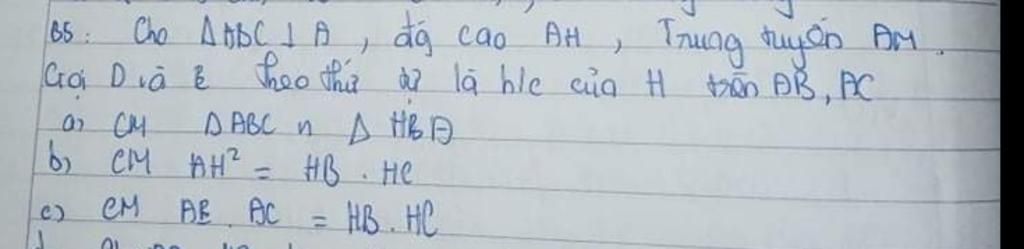 B5: Cho ΔABC ⊥ A, đg cao AH, Trung tuyến AM.
Gọi D và E theo thứ tự là h/c của H trên AB, AC
a) CM ΔABC ∽ Δ HBA
b) CM AH² = HB . HC
c) CM AE . AC = HB . HC